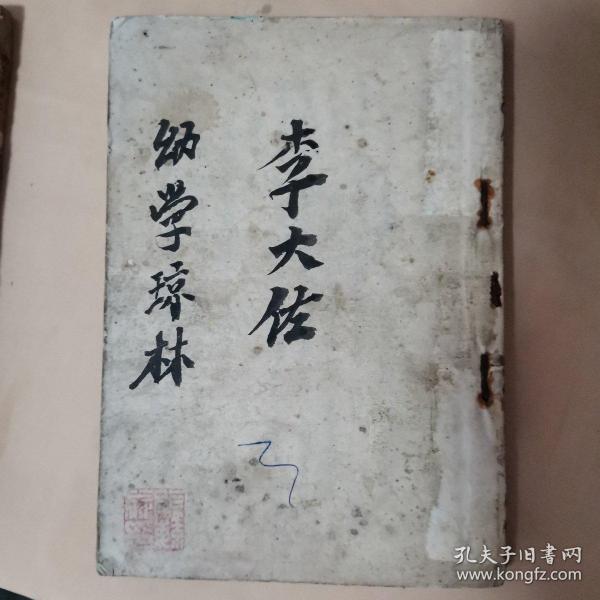 李大佐
幼学琼林
孔夫子旧书网
www.kongfz.com